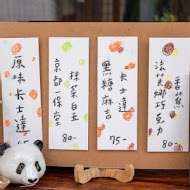 原味卡士達
45-
抹茶白玉
京都保堂
80-
卡士達
黑糖麻吉
75-
香蕉
法芙娜巧克力
80-